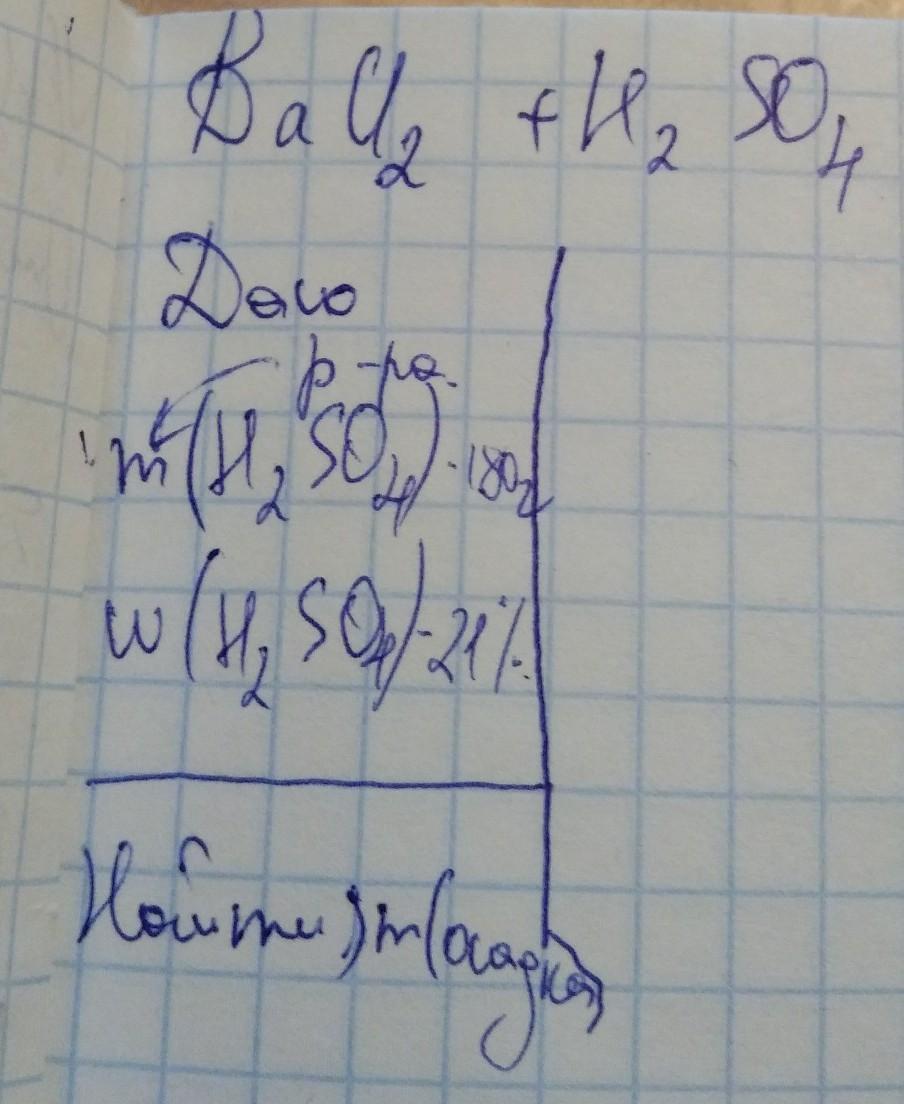 BaCl₂ + H₂SO₄
Дано
р-ра.
m(H₂SO₄)-180г
w(H₂SO₄)-21%.
Найти) m(осадка)